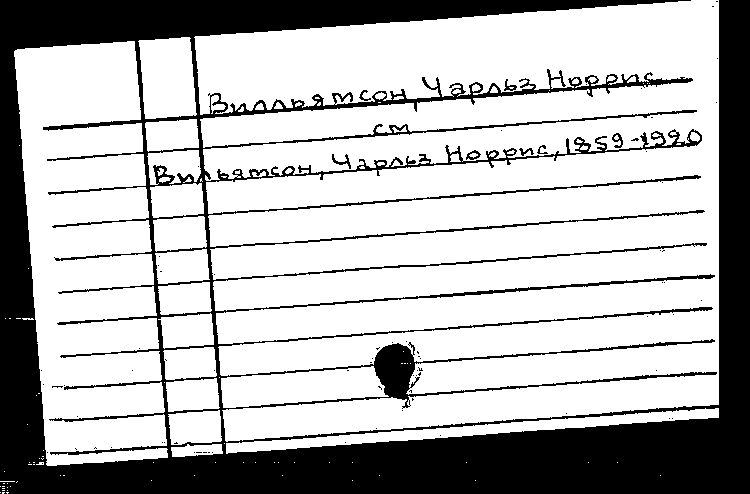 Вилльямсон, Чарльз Норрис
см
Вильямсон, Чарльз Норрис, 1859-1920